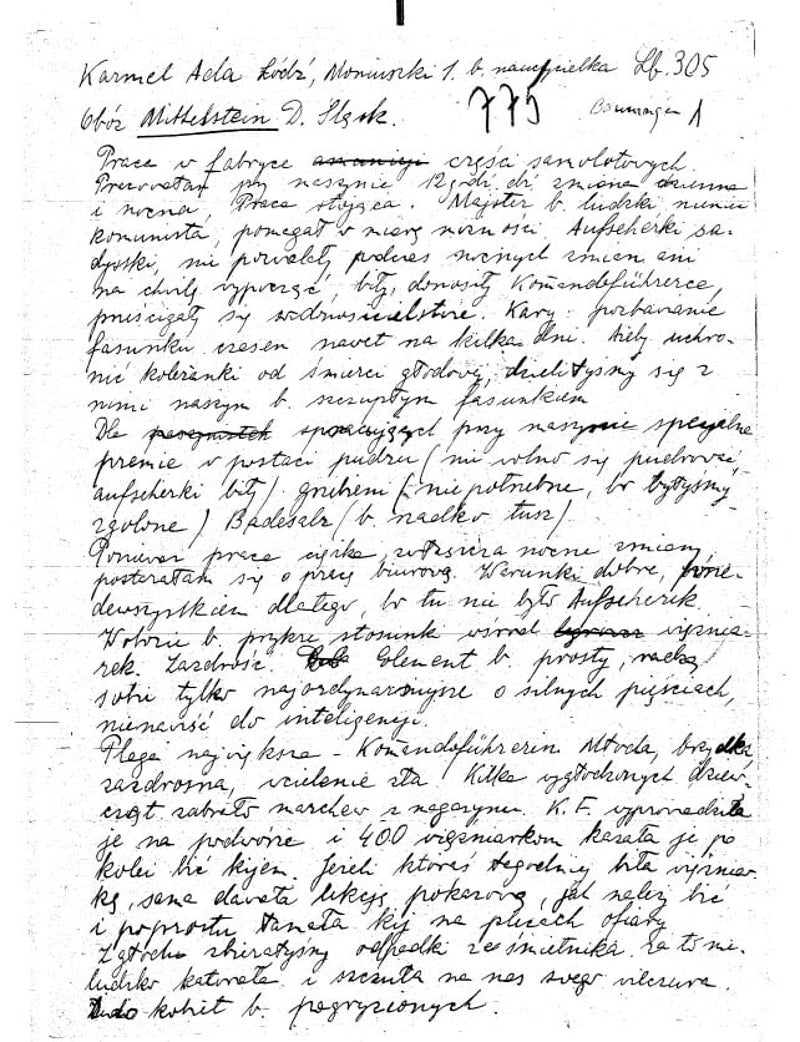 Karmel Ada Łódź, Moniuszki 1. b. nauczycielka Lb. 305
Obóz Mittelstein D. Śląsk. 775
Praca w fabryce amunicji części samolotowych.
Pracowałam przy maszynie 12 godz. dz. zmiana dzienna
i nocna, Praca stojąca. Majster b. ludzki niemiec
komunista, pomagał w miarę możności. Aufseherki sa-
dystki, nie pozwalały podczas nocnych zmian ani
na chwilę wypocząć, biły, donosiły Komandoführerce,
prześcigały się w donosicielstwie. Kary: pozbawianie
fasunku czasem nawet na kilka dni. Ażeby uchro-
nić koleżanki od śmierci głodowej, dzieliłyśmy się z
niemi naszym b. szczupłym fasunkiem
Dla pracujących przy maszynie specjalne
premie w postaci pudru (nie wolno się pudrować,
aufseherki biły) grzebieni (niepotrzebne, bo byłyśmy
zgolone) Badesalz (b. rzadko tusz)
Ponieważ praca ciężka, zwłaszcza nocne zmiany,
postarałam się o pracę biurową. Warunki dobre, prze-
dewszystkiem dlatego, bo tu nie było Aufseherek.
W obozie b. przykre stosunki wśród więźnia-
rek. Zazdrość. Element b. prosty,
sobie tylko najordynarniejsze o silnych pięściach,
nienawiść do inteligencji.
Plaga największa - Komandoführerin. Młoda, brzydka,
zazdrosna, wcielenie zła. Kilka wygłodzonych dziew-
cząt zabrało marchew z magazynu. K.F. wyprowadziła
je na podwórze i 400 więźniarkom kazała je po
kolei bić kijem. Jeżeli któraś łagodniej biła więźniar-
kę, sama dawała lekcję pokazową, jak należy bić
i poprostu łamała kij na plecach ofiary
Z głodu zbierałyśmy odpadki ze śmietnika. za to nie-
ludzko katowała i szczuła na nas swego wilczura.
Dużo kobiet b. pogryzionych.